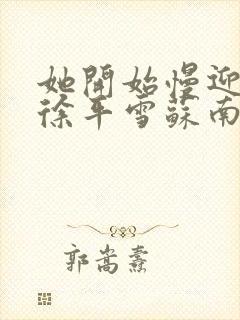 她開始慢迎
徐平雪蘇南
郭嵩燾